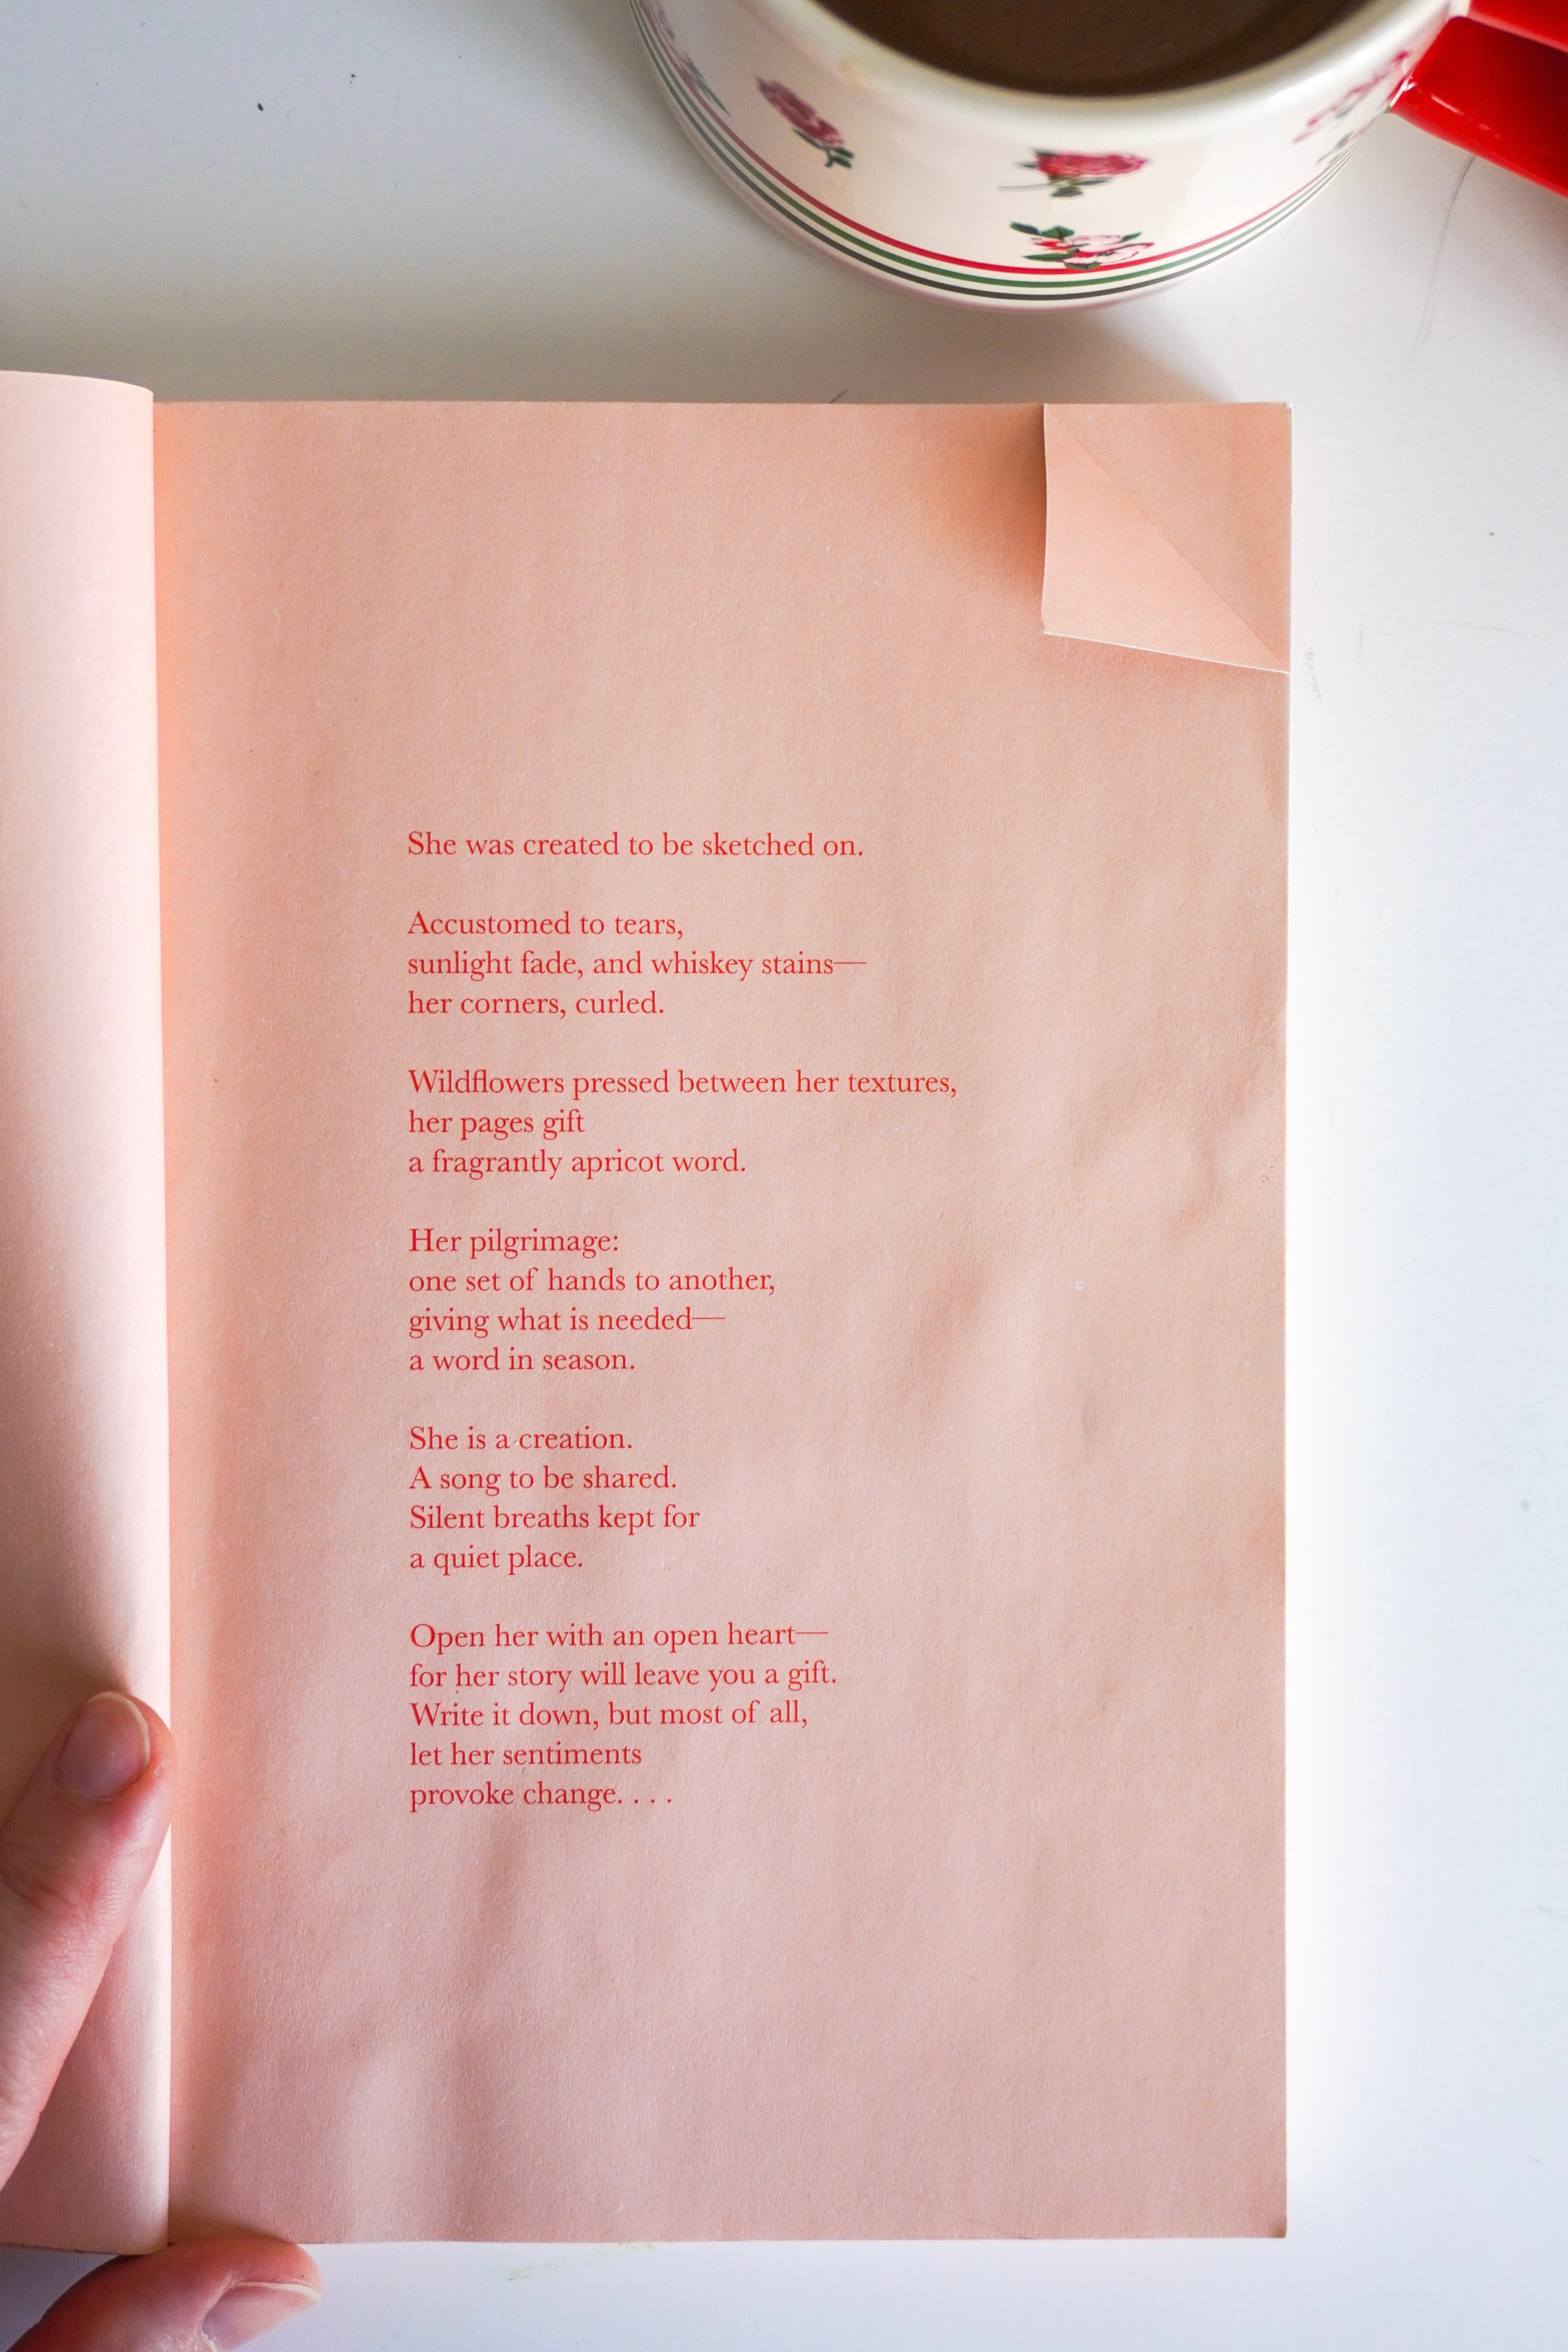 She was created to be sketched on.
Accustomed to tears,
sunlight fade, and whiskey stains—
her corners, curled.
Wildflowers pressed between her textures,
her pages gift
a fragrantly apricot word.
Her pilgrimage:
one set of hands to another,
giving what is needed—
a word in season.
She is a creation.
A song to be shared.
Silent breaths kept for
a quiet place.
Open her with an open heart—
for her story will leave you a gift.
Write it down, but most of all,
let her sentiments
provoke change. . . .